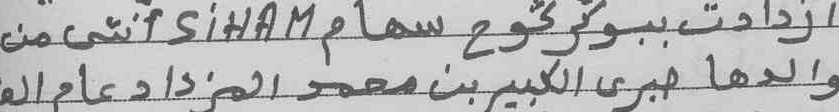 ازدادت ببوكركوح سهام SiHAM أنثى من
والدها صبري الكبير بن محمد المزداد عام